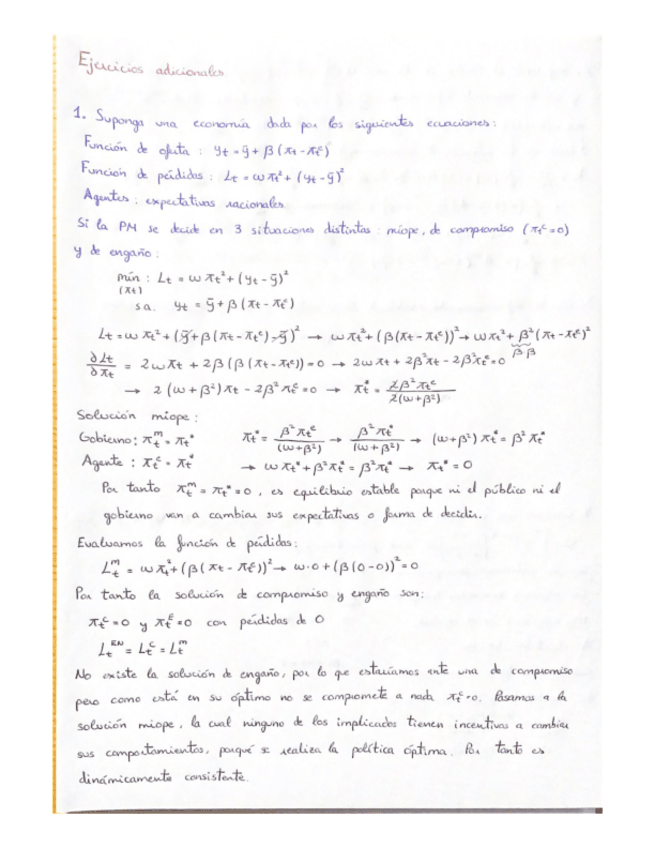 Ejercicios adicionales
1. Suponga una economía dada por los siguientes ecuaciones:
Función de oferta : yt = ȳ + β (πt - πtᵉ)
Función de pérdidas : Lt = ω πt² + (yt - ȳ)²
Agentes : expectativas racionales
Si la PM se decide en 3 situaciones distintas : miope, de compromiso (πtᶜ = 0)
y de engaño :
mín : Lt = ω πt² + (yt - ȳ)²
(πt)
s.a. yt = ȳ + β (πt - πtᵉ)
Lt = ω πt² + (ȳ + β (πt - πtᵉ) - ȳ)² → ω πt² + (β (πt - πtᵉ))² → ω πt² + β² (πt - πtᵉ)²
∂Lt/∂πt = 2ωπt + 2β (β (πt - πtᵉ)) = 0 → 2ωπt + 2β²πt - 2β²πtᵉ = 0 β β
→ 2 (ω + β²) πt - 2β² πtᵉ = 0 → πt* = 2β² πtᵉ / 2(ω + β²)
Solución miope :
Gobierno : πtᵐ = πt* πt* = β² πtᵉ / (ω + β²) → β² πt* / (ω + β²) → (ω + β²) πt* = β² πt*
Agente : πtᵉ = πt* → ω πt* + β² πt* = β² πt* → πt* = 0
Por tanto πtᵐ = πt* = 0 , es equilibrio estable porque ni el público ni el
gobierno van a cambiar sus expectativas o forma de decidir.
Evaluamos la función de pérdidas :
Ltᵐ = ω πt² + (β (πt - πtᵉ))² → ω · 0 + (β (0 - 0))² = 0
Por tanto la solución de compromiso y engaño son :
πtᶜ = 0 y πtᴱ = 0 con pérdidas de 0
Ltᴱᴺ = Ltᶜ = Ltᵐ
No existe la solución de engaño, por lo que estaríamos ante una de compromiso
pero como está en su óptimo no se compromete a nada πtᶜ = 0. Pasamos a la
solución miope, la cual ninguno de los implicados tienen incentivos a cambiar
sus comportamientos, porqué se realiza la política óptima. Por tanto es
dinámicamente consistente.